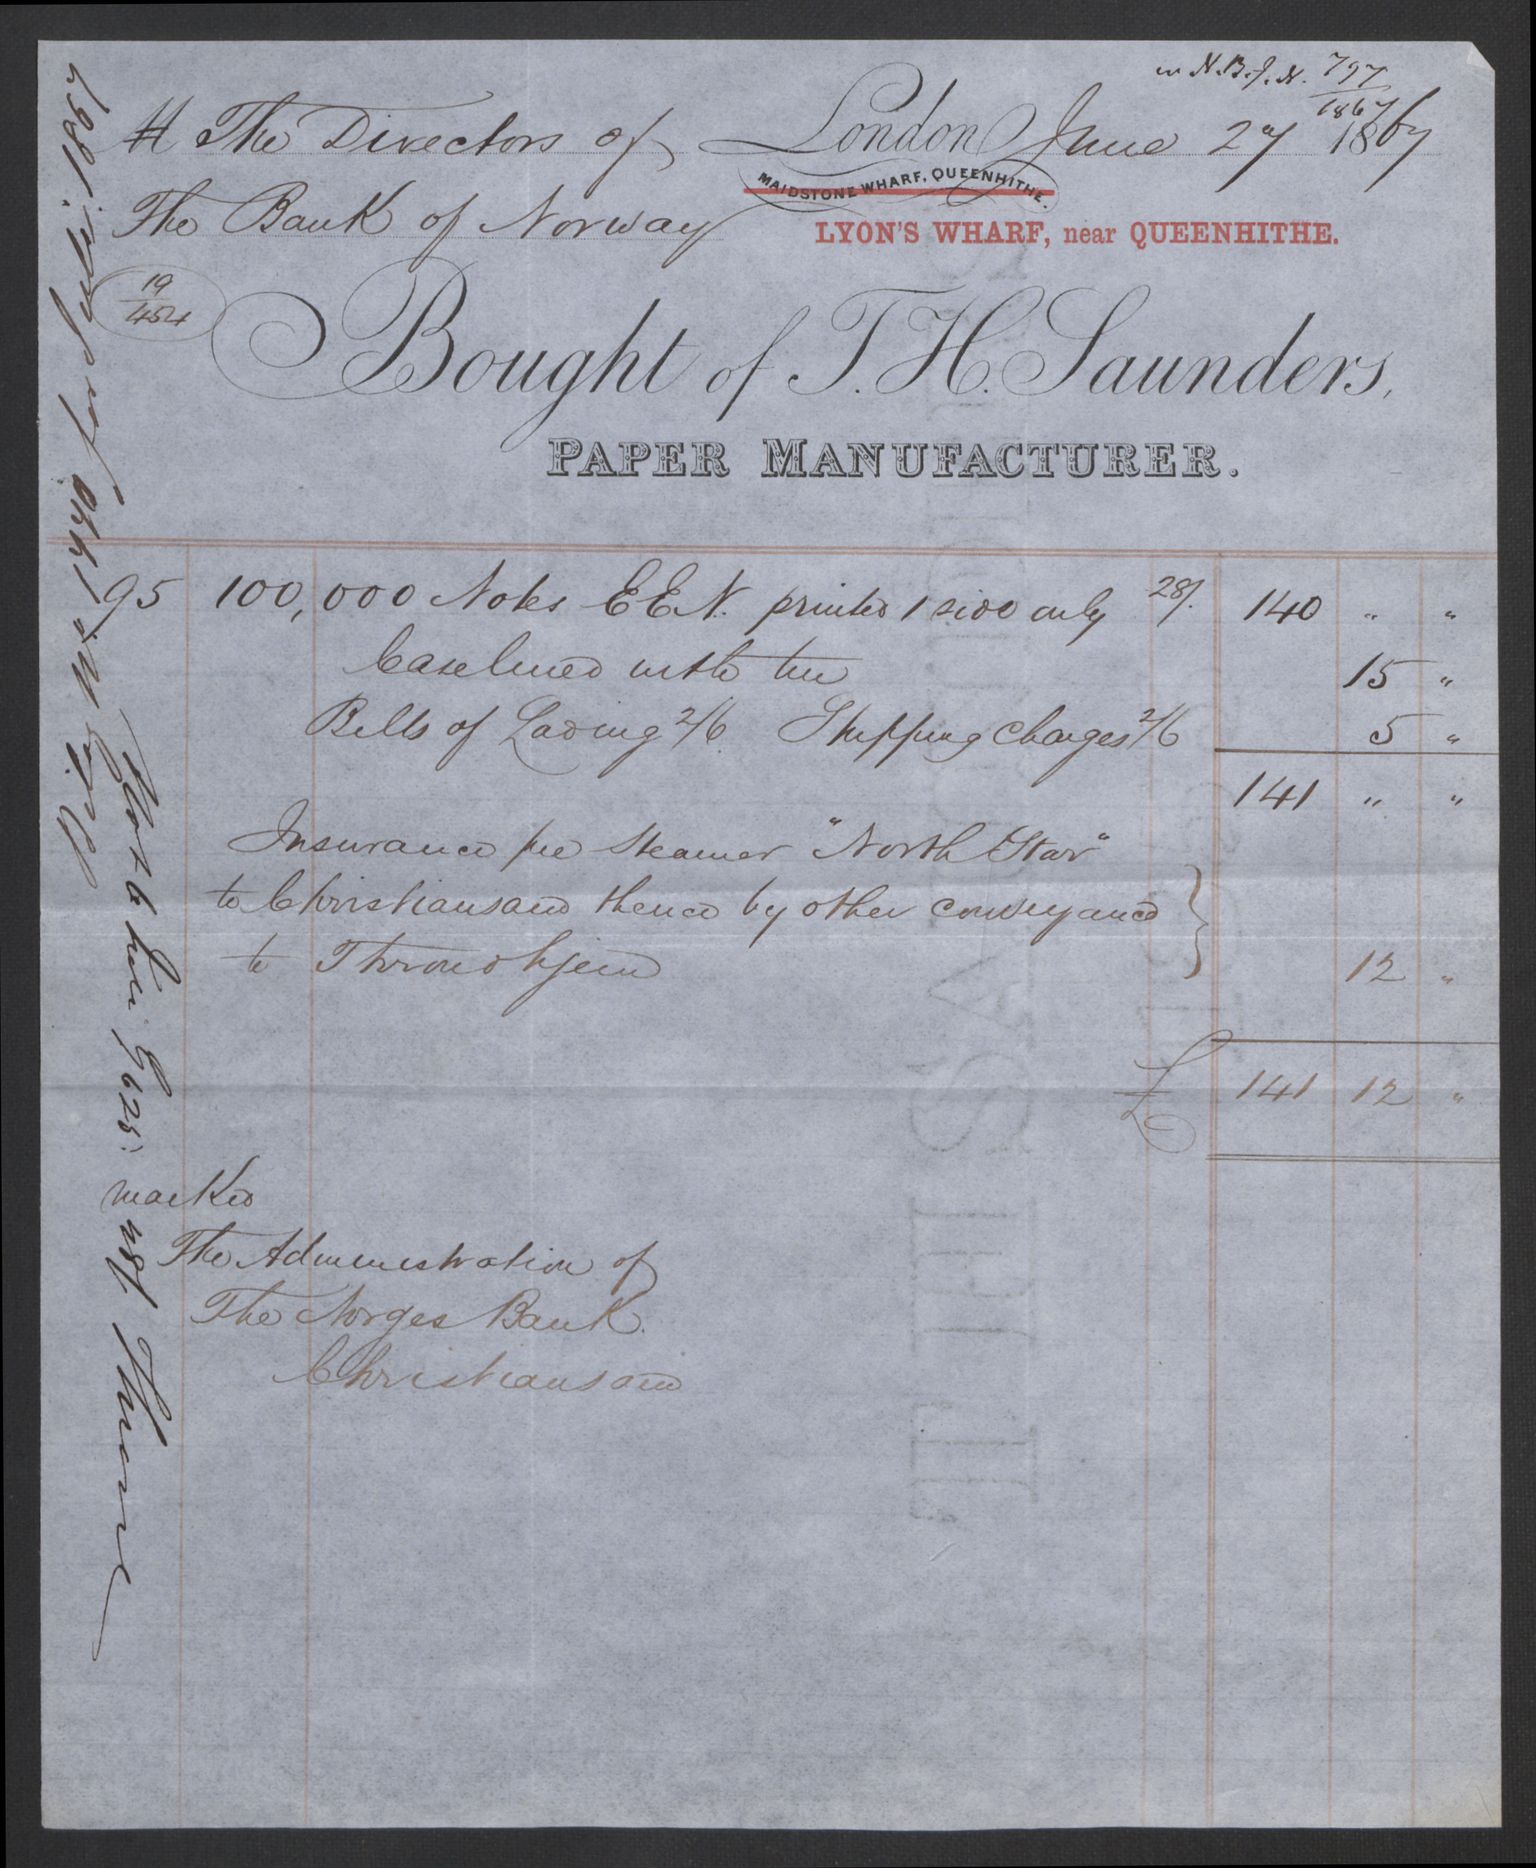 N.B.J.N. 797/1867
The Directors of London June 27 1867
The Bank of Norway
MAIDSTONE WHARF, QUEENHITHE.
LYON'S WHARF, near QUEENHITHE.
19/454
Bought of T. H. Saunders,
PAPER MANUFACTURER.
95 100,000 Notes E E N. printed 1 side only 28/. 140 " "
Case lined with tin 15 "
Bills of Lading 2/6 Shipping Charges 2/6 5 "
141 " "
Insurance per Steamer "North Star"
to Christiansand thence by other conveyance
to Throndhjem 12 "
£ 141 12 "
marked
The Administration of
The Norges Bank.
Christiansand
1440 for 1867